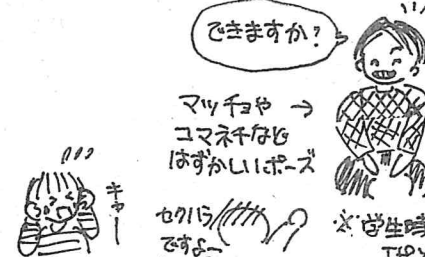 できますか?
マッチョや →
コマネチなど
はずかしいポーズ
キャー
セクハラ
ですよ〜
※学生時